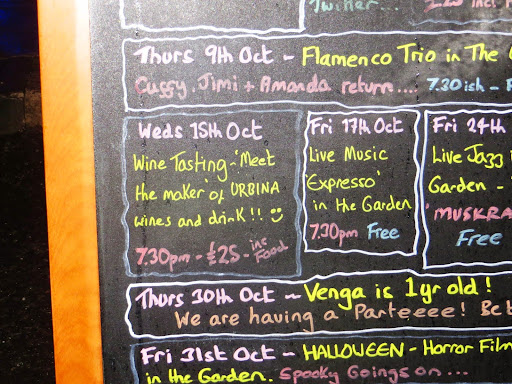 Twitter...
Thurs 9th Oct - Flamenco Trio in The
Cuffy, Jimi + Amanda return.... 7.30ish -
Weds 15th Oct
Wine Tasting - 'Meet
the maker' of URBINA
wines and drink!! ☺
7.30pm - £25 - inc Food
Fri 17th Oct
Live Music
'Expresso'
in the Garden
7.30pm Free
Fri 24th
Live Jazz
Garden -
'MUSKRA
Free
Thurs 30th Oct - Venga is 1yr old!
We are having a Parteeee!
Fri 31st Oct - HALLOWEEN - Horror Film
in the Garden. Spooky Goings on...